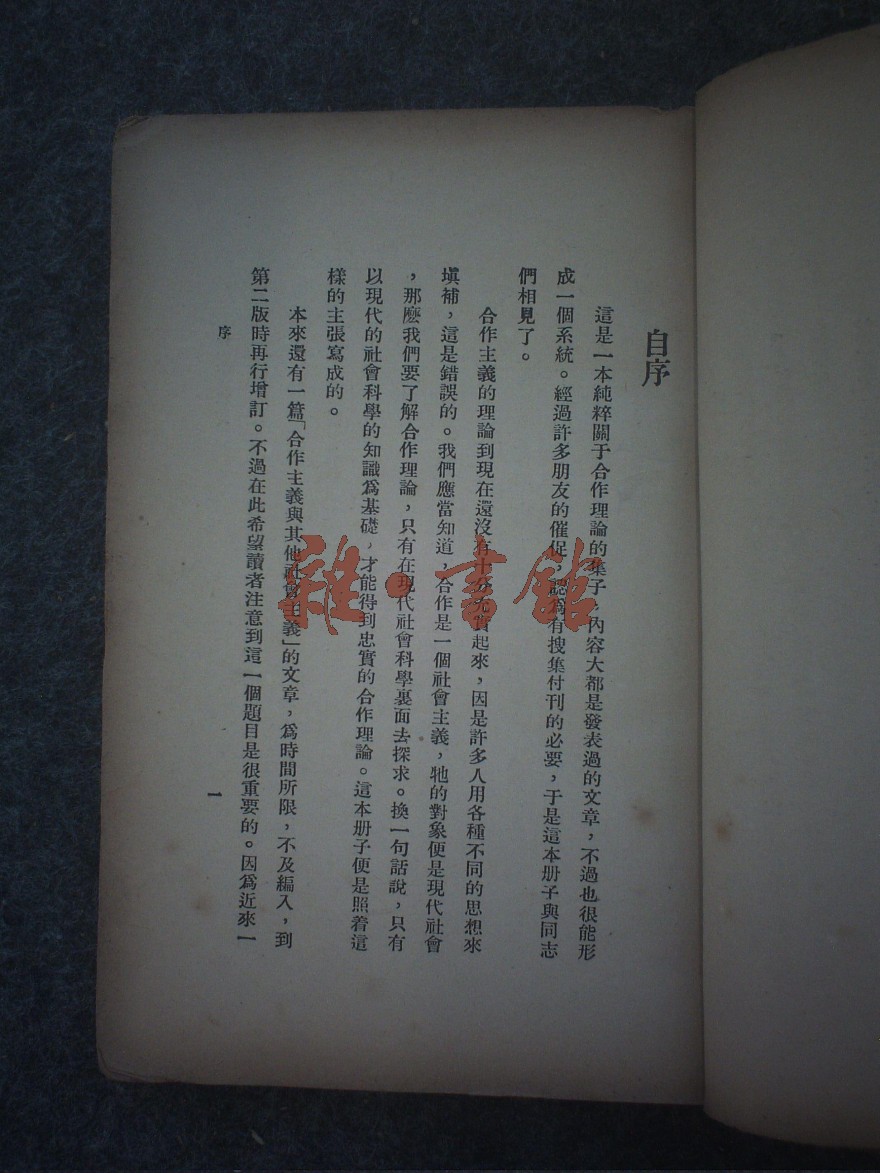 自序
這是一本純粹關于合作理論的集子，內容大都是發表過的文章，不過也很能形
成一個系統。經過許多朋友的催促，認爲有搜集付刊的必要，于是這本册子與同志
們相見了。
合作主義的理論到現在還沒有十分充實起來，因是許多人用各種不同的思想來
塡補，這是錯誤的。我們應當知道，合作是一個社會主義，牠的對象便是現代社會
，那麽我們要了解合作理論，只有在現代社會科學裏面去探求。換一句話說，只有
以現代的社會科學的知識爲基礎，才能得到忠實的合作理論。這本册子便是照着這
樣的主張寫成的。
本來還有一篇「合作主義與其他社會主義」的文章，爲時間所限，不及編入，到
第二版時再行增訂。不過在此希望讀者注意到這一個題目是很重要的。因爲近來一
序
一
雜·書館